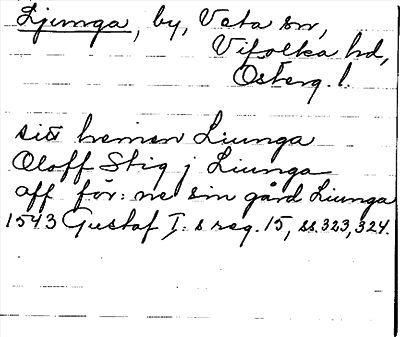 Ljunga, by, Veta sn,
Vifolka hd,
Österg. l.
sitt hemen Liunga
Oloff Stig j Liunga
aff för:ne sin gård Liunga
1543 Gustaf I:s reg. 15, ss. 323, 324.